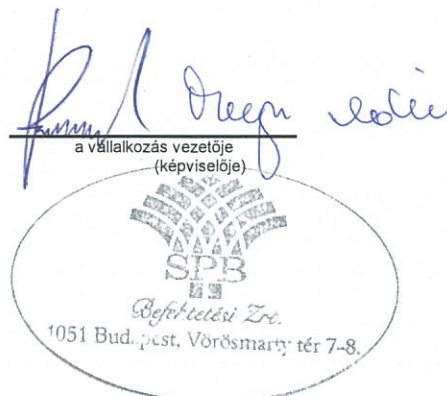 a vállalkozás vezetője
(képviselője)
SPB
Befektetési Zrt.
1051 Budapest, Vörösmarty tér 7-8.